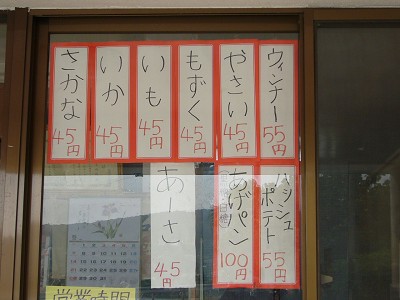 ウィンナー
55円
やさい
45円
もずく
45円
いも
45円
いか
45円
さかな
45円
ハッシュ
ポテト
55円
あげパン
100円
あーさ
45円
営業時間